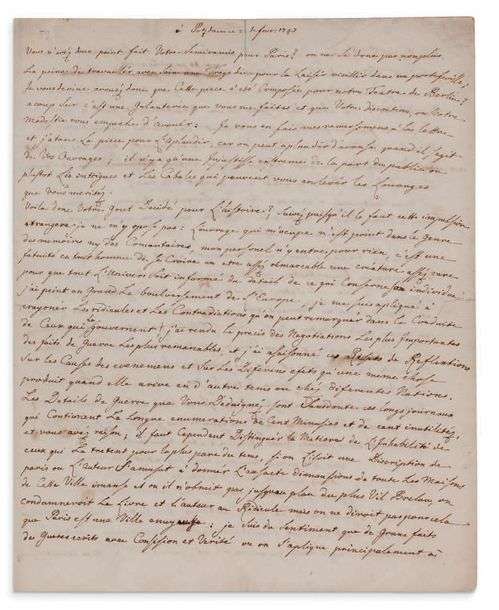 à Potsdam ce
Vous n'avez donc point fait Votre Semiramis pour Paris? on ne se donne pas non plus
La peine de travailler avec soin une Tragedie pour La Laisser vieillir dans un portefeuille;
Je vous devine avouez donc que Cette piece a été Composée pour notre Teatre de Berlin;
a coup sur c'est une galanterie que vous me faites et que Votre discretion, ou Votre
Modestie vous empeche d'avouer: Je vous en fais mes remerciemens a La Lettre
et j'atens La piece pour L'aplaudir, car on peut aplaudir d'avance quand il s'agit
de Vos Ouvrages; il n'y a qu'une injustice extreme de la part du public ou
plustot Les intrigues et Les Cabales qui peuvent vous enlever Les Louanges
que Vous meritez.
Voila donc Votre Gout Decidé pour L'histoire? Suivez puisqu'il le faut cette impulsion
etrangere je ne m'y oppose pas: L'ouvrage qui m'occupe n'est point dans Le genre
de memoires ny de Comentaires, mon personel n'y entre pour rien, c'est une
fatuité en tout homme de se Croire un etre assez remarcable
pour que tout L'Univers Soit informé du detail de ce qui Conserne Son individu
j'ai peint en Grand Le bouleversement de L'Europe, je me suis apliqué a
crayoner Les ridicules et Les Contradictions qu'on peut remarquer dans La Conduite
de Ceux qui La gouvernent; j'ai rendu le precis des Negotiations Les plus Importantes
des faits de Guerre Les plus remarcables, et j'ai asaisoné ces de Reflections
Sur Les Causes des evenemens et Sur Les diferens efets qu'une meme chose
produit quand elle arive en d'autre tems ou chez diferentes Nations.
Les Details de Guerre que Vous Dedaignez sont Sans doute ces Longs journaux
qui Contienent La Longue enumeration de Cent Minuties et de cent inutilités
et vous avez raison; il faut Cependent Distinguer La Matiere de L'inhabileté de
ceux qui La tretent pour La plus part du tems, si on Lisoit une Description de
paris ou L'auteur S'amusat a doner L'exacte dimansions de toutes Les Maisons
de Cette Ville et ou il n'obmit pas jusqu'au plan du plus Vil Brelan, on
condamneroit Le Livre et L'auteur au Ridicule mais on ne diroit pas pour cela
que Paris est une Ville enuyeuse: je suis du Sentiment que de Grans faits
de Guerre ecrits avec Consision et Verité ou on S'aplique principalement a